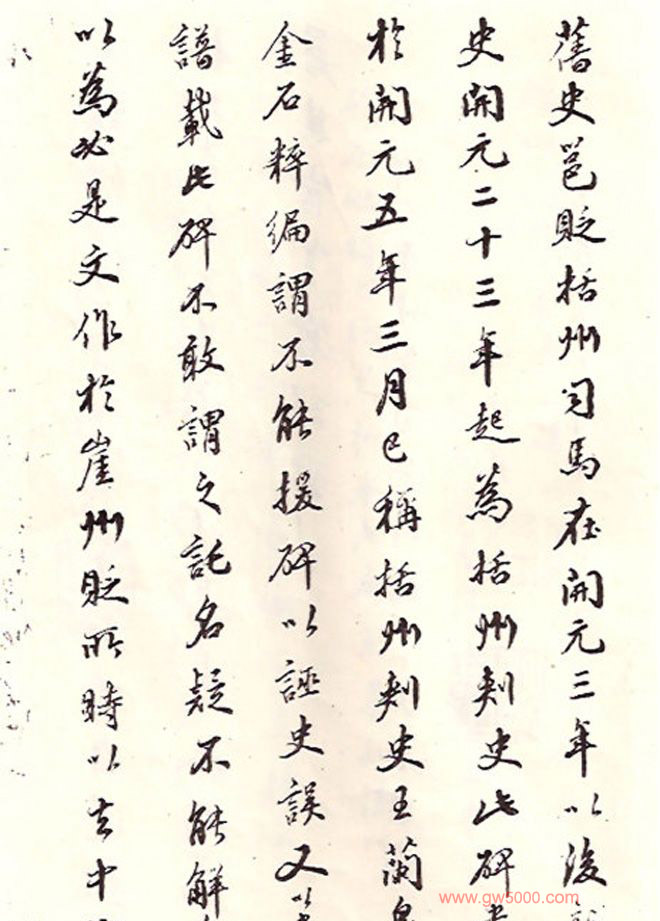 舊史邕貶括州司馬在開元三年以後
史開元二十三年起為括州刺史此碑
於開元五年三月已稱括州刺史王蘭泉
金石粹編謂不能援碑以誣史誤又以
譜載此碑不敢謂之託名疑不能解
以為必是文作於崖州貶所時以去中
www.gw5000.com